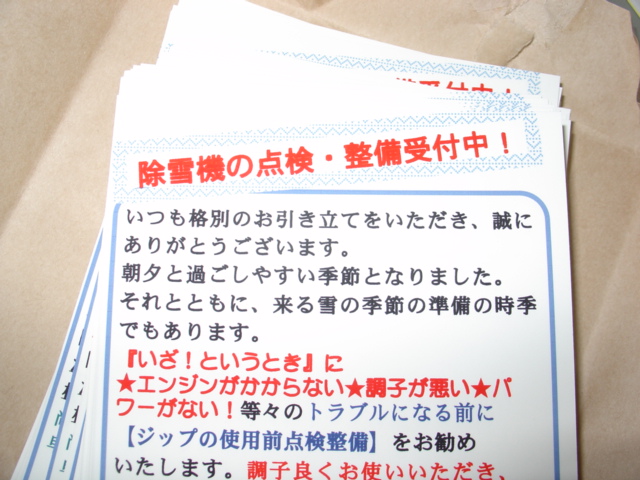 除雪機の点検・整備受付中!
いつも格別のお引き立てをいただき、誠に
ありがとうございます。
朝夕と過ごしやすい季節となりました。
それとともに、来る雪の季節の準備の時季
でもあります。
『いざ!というとき』に
★エンジンがかからない★調子が悪い★パ
ワーがない!等々のトラブルになる前に
【ジップの使用前点検整備】をお勧め
いたします。調子良くお使いいただき、